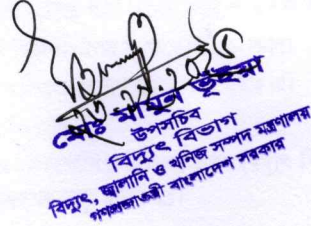 মোঃ মামুন ভূঁইয়া
উপসচিব
বিদ্যুৎ বিভাগ
বিদ্যুৎ, জ্বালানি ও খনিজ সম্পদ মন্ত্রণালয়
গণপ্রজাতন্ত্রী বাংলাদেশ সরকার